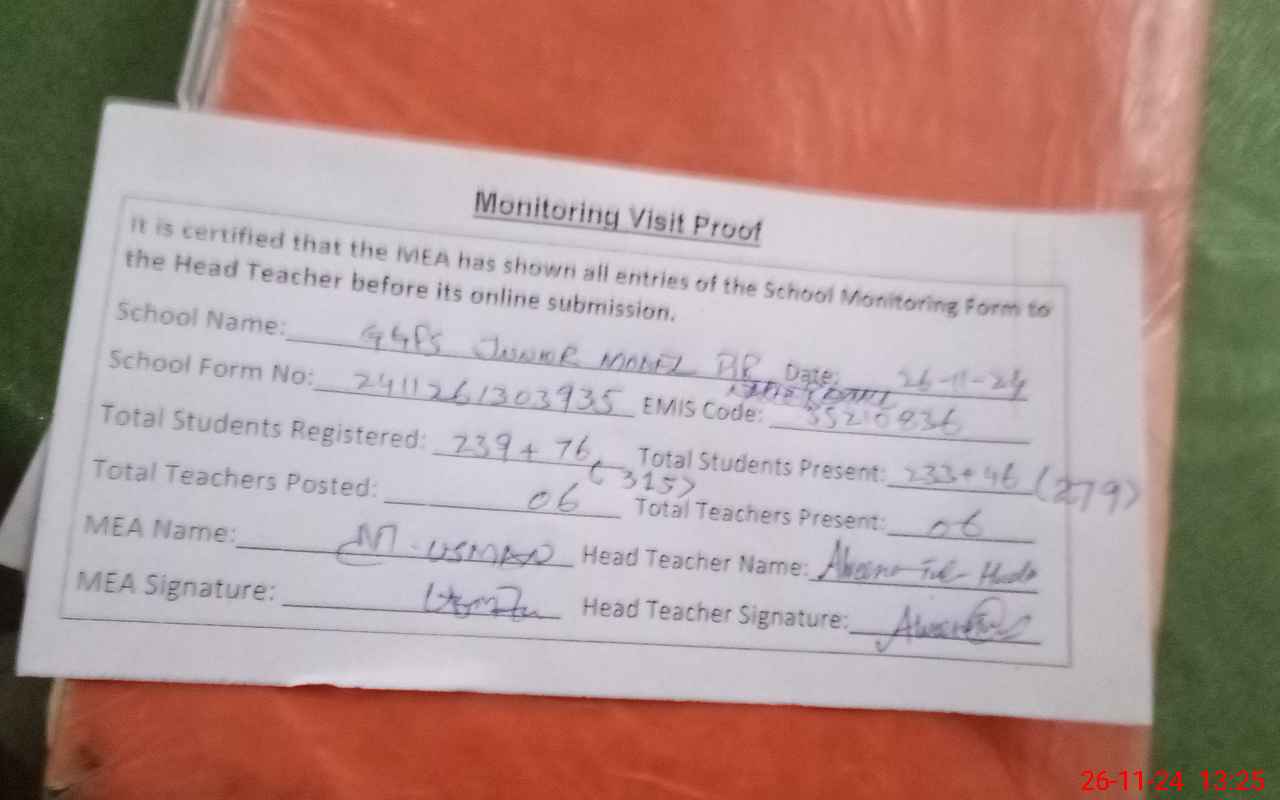 Monitoring Visit Proof
It is certified that the MEA has shown all entries of the School Monitoring Form to
the Head Teacher before its online submission.
School Name: GGPS JUNIOR MODEL Date: 26-11-24
School Form No: 2411261303935 EMIS Code: 35210836
Total Students Registered: 239 + 76 (315) Total Students Present: 233+46 (279)
Total Teachers Posted: 06 Total Teachers Present: 06
MEA Name: M. USMAN Head Teacher Name: Tul-Huda
MEA Signature: Head Teacher Signature:
26-11-24 13:25